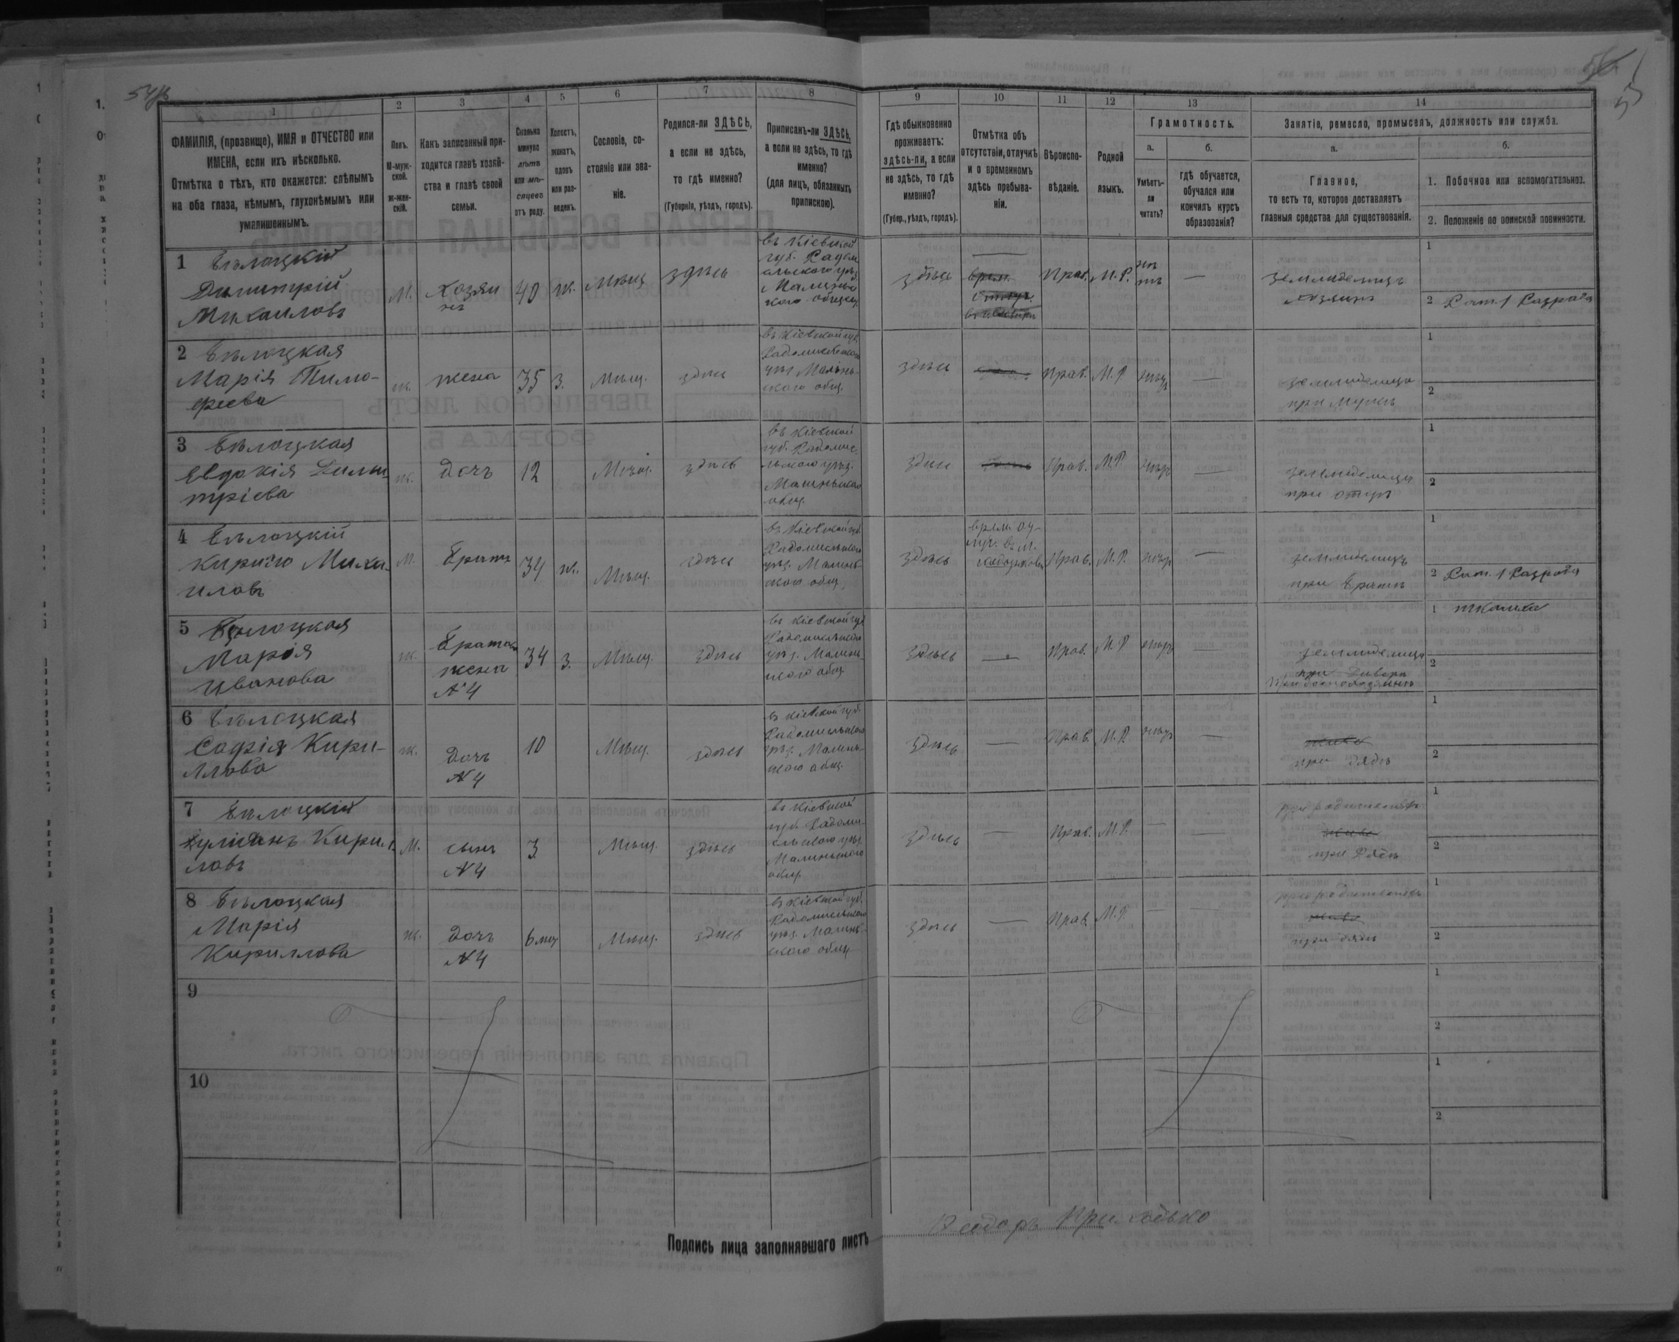 1
2
3
4
5
6
7
8
9
10
11
12
13
14
ФАМИЛІЯ, (прозвище), ИМЯ и ОТЧЕСТВО или
ИМЕНА, если ихъ нѣсколько.
Отмѣтка о тѣхъ, кто окажется: слѣпымъ
на оба глаза, нѣмымъ, глухонѣмымъ или
умалишеннымъ.
Полъ.
М-муж-
ской.
ж-жен-
скій.
Какъ записанный при-
ходится главѣ хозяй-
ства и главѣ своей
семьи.
Сколько
минуло
лѣтъ
или мѣ-
сяцевъ
отъ роду.
Холостъ,
женатъ,
вдовъ
или раз-
веденъ.
Сословіе, со-
стояніе или зва-
ніе.
Родился-ли ЗДѢСЬ,
а если не здѣсь,
то гдѣ именно?
(Губернія, уѣздъ, городъ).
Приписанъ-ли ЗДѢСЬ,
а если не здѣсь, то гдѣ
именно?
(для лицъ, обязанныхъ
припискою).
Гдѣ обыкновенно
проживаетъ:
здѣсь-ли, а если
не здѣсь, то гдѣ
именно?
(Губерн., уѣздъ, городъ).
Отмѣтка объ
отсутствіи, отлучкѣ
и о временномъ
здѣсь пребыва-
ніи.
Вѣроиспо-
вѣданіе.
Родной
языкъ.
Грамотность.
а.
б.
Умѣетъ-
ли
читать?
гдѣ обучается,
обучался или
кончилъ курсъ
образованія?
Занятіе, ремесло, промыселъ, должность или служба.
а.
б.
Главное,
то есть то, которое доставляетъ
главныя средства для существованія.
1. Побочное или вспомогательное.
2. Положеніе по воинской повинности.
1 Бѣлоцкій
Димитрій
Михаиловъ
М.
Хозяи
нъ
40
ж.
Мѣщ
здѣсь
въ Кіевской
губ. Радом
ысльского уѣз
Малинь
ского общес
здѣсь
Прав.
М.Р.
—
земледелецъ
1
2 Рат. 1 Разряда
2 Бѣлоцкая
Марія Тимо-
феева
ж
жена
35
з.
Мѣщ.
здѣсь
въ Кіевской губ.
Радомысльского
уѣз. Малинь-
ского общ.
здѣсь
Прав.
М.Р
—
земледелица
при мужѣ
1
2
3 Бѣлоцкая
Евдокія Дими
тріева
ж.
дочь
12
Мѣщ.
здѣсь
въ Кіевской
губ. Радомис-
льского уѣз.
Малиньского
общ.
здѣсь
Прав.
М.Р
—
земледелица
при отцѣ
1
2
4 Бѣлоцкій
Кирило Миха
иловъ
М.
Братъ
34
ж.
Мѣщ.
здѣсь
въ Кіевской губ
Радомисльского
уѣз. Малинь-
ского общ.
здѣсь
Прав.
М.Р.
—
земледелецъ
при братѣ
1
2 Рат. 1 Разряда
5 Бѣлоцкая
Марія
Иванова
ж.
Брата
жена
№4
34
з.
Мѣщ.
здѣсь
въ Кіевской губ
Радомисльского
уѣз. Малинь-
ского общ
здѣсь
—
Прав.
М.Р
—
земледелица
1
2
6 Бѣлоцкая
Софія Кири-
ллова
ж.
дочь
№4
10
Мѣщ.
здѣсь
въ Кіевской губ.
Радомисльского
уѣз. Малинь-
ского общ.
здѣсь
—
Прав.
М.Р.
—
при дядѣ
1
2
7 Бѣлоцкій
Кири
ловъ
М.
сынъ
№4
3
Мѣщ.
здѣсь
въ Кіевской
губ. Радоми-
сльского уѣз.
Малиньского
общ
здѣсь
—
Прав.
М.Р.
—
—
при дядѣ
1
2
8 Бѣлоцкая
Марія
Кириллова
ж.
дочь
№4
6 мц
Мѣщ.
здѣсь
въ Кіевской губ.
Радомисльского
уѣз. Малинь-
ского общ
здѣсь
—
Прав.
М.Р.
—
—
при дядѣ
1
2
9
1
2
10
1
2
Подпись лица заполнявшаго листъ
Феодоръ Приходько